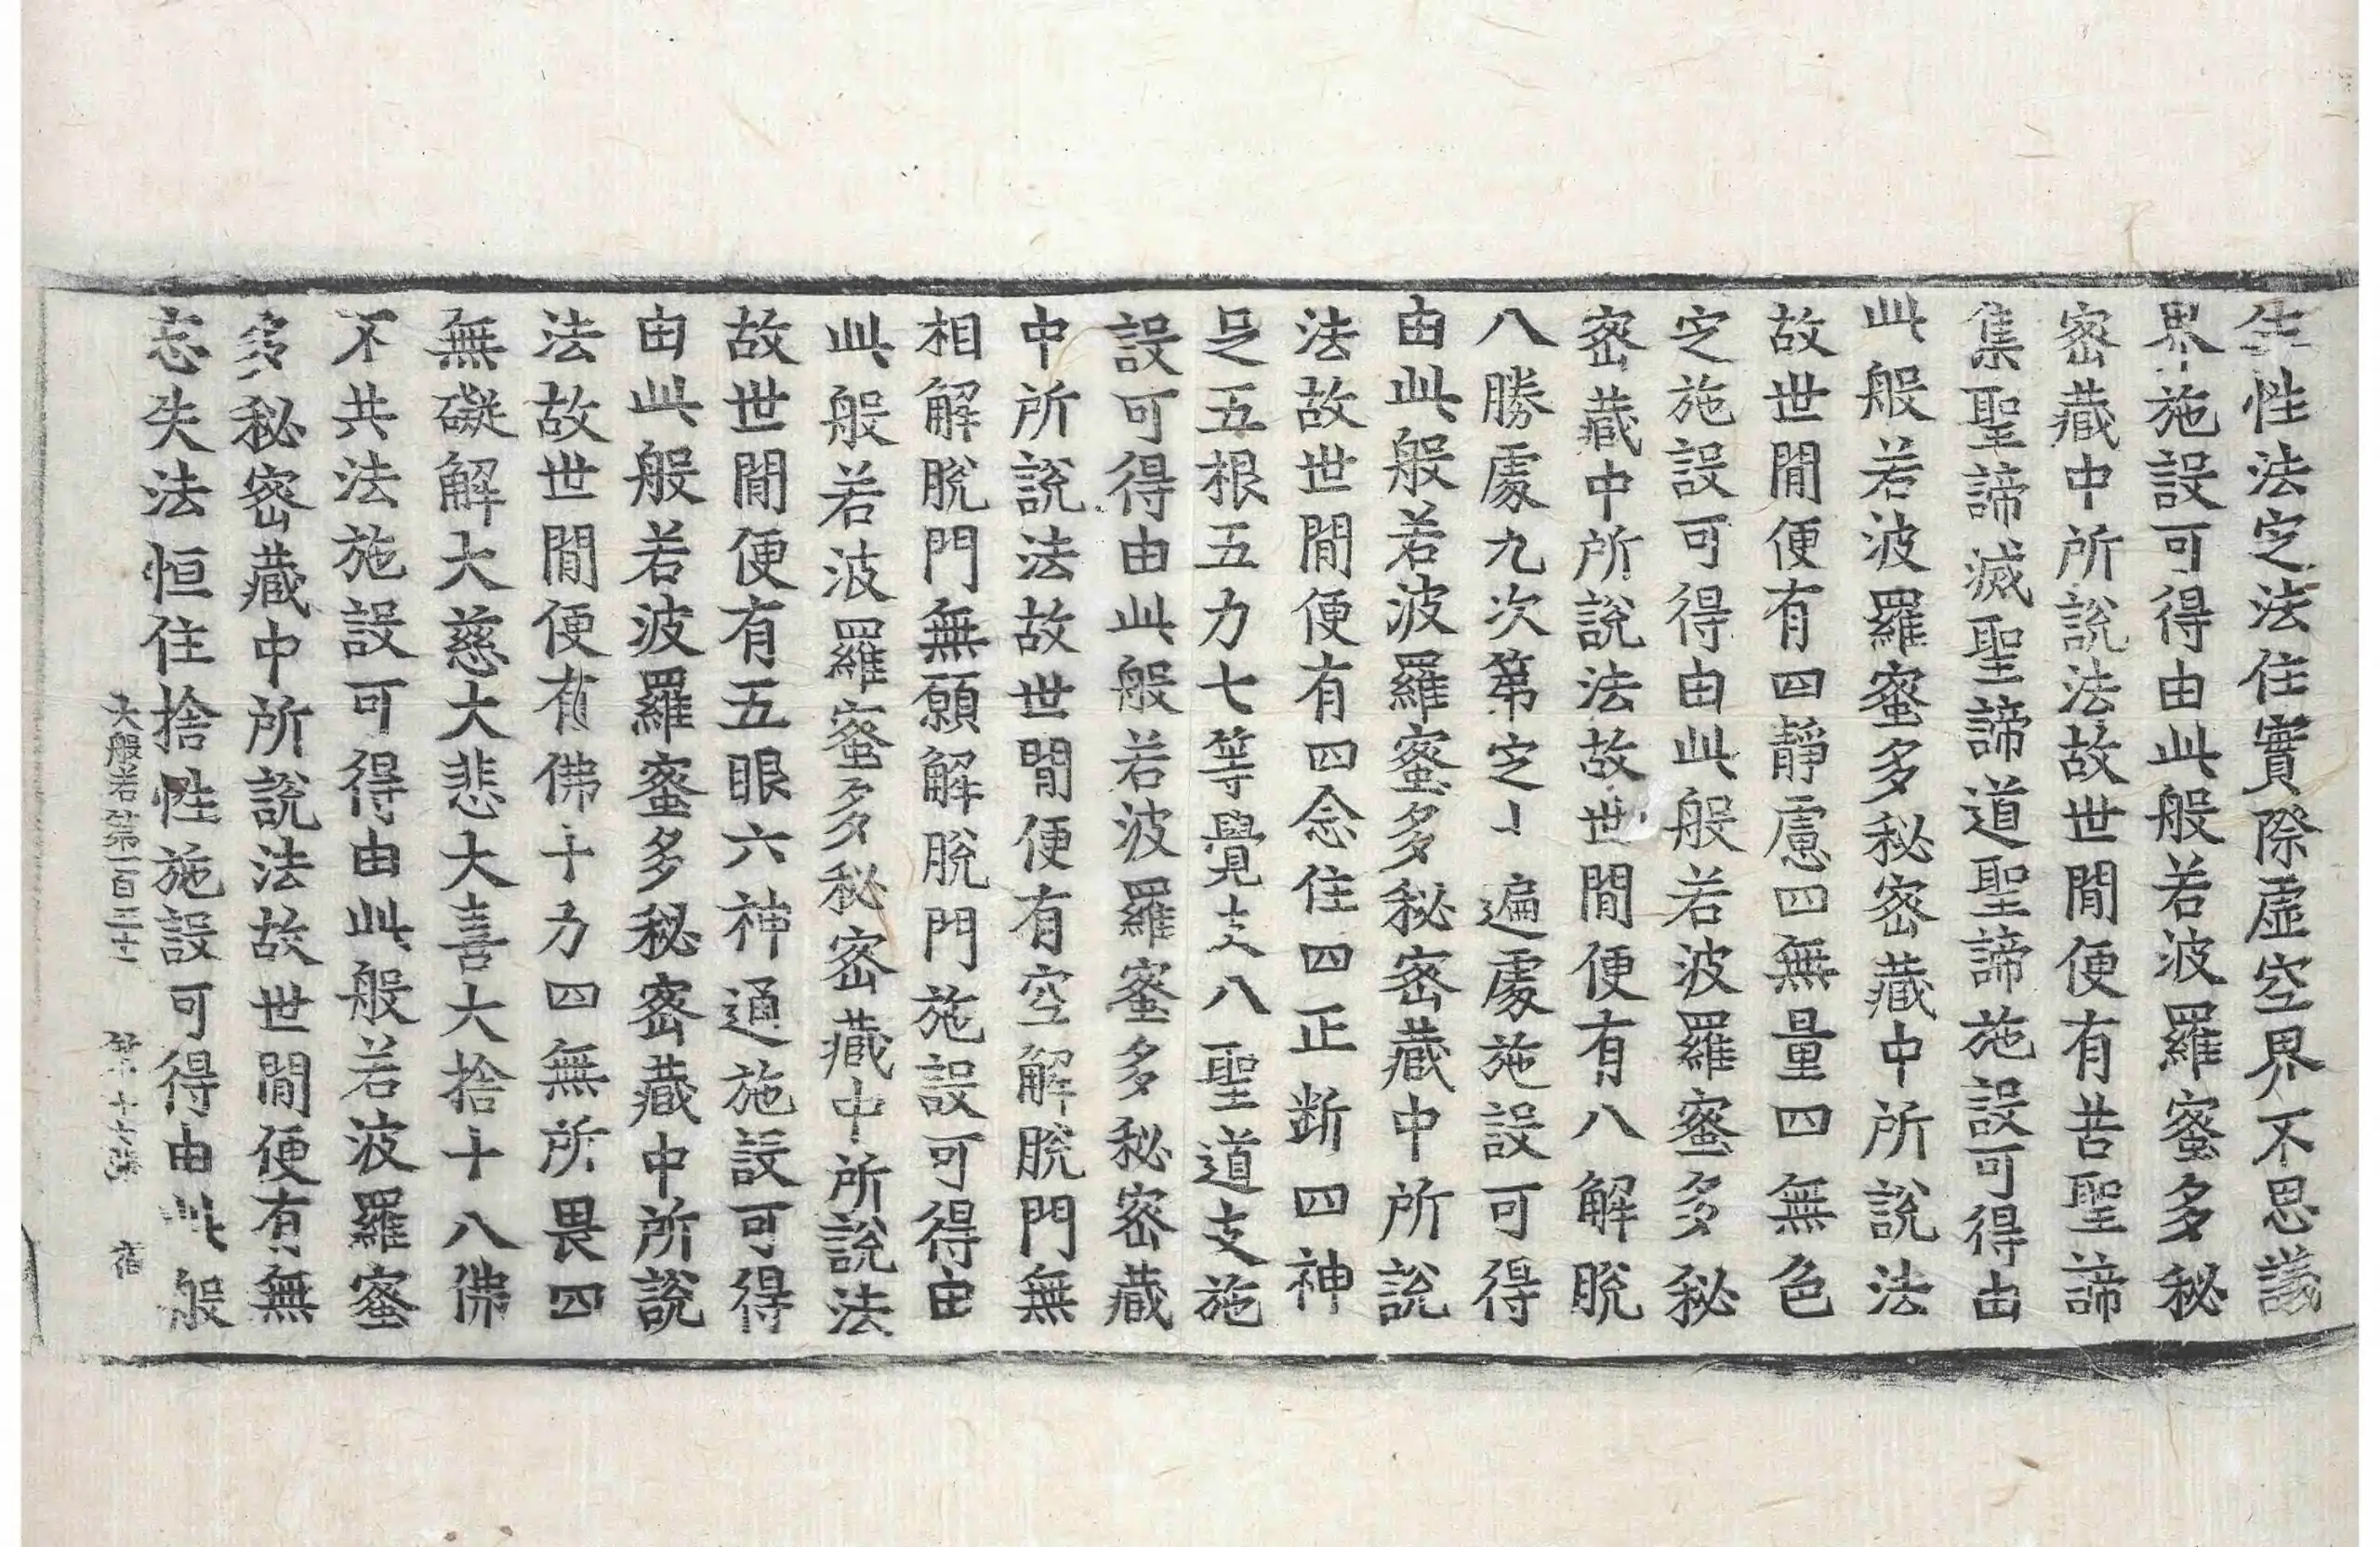 生性法定法住實際虛空界不思議
界施設可得由此般若波羅蜜多秘
密藏中所說法故世間便有苦聖諦
集聖諦滅聖諦道聖諦施設可得由
此般若波羅蜜多秘密藏中所說法
故世間便有四靜慮四無量四無色
定施設可得由此般若波羅蜜多秘
密藏中所說法故世間便有八解脫
八勝處九次第定十遍處施設可得
由此般若波羅蜜多秘密藏中所說
法故世間便有四念住四正断四神
足五根五力七等覺支八聖道支施
設可得由此般若波羅蜜多秘密藏
中所說法故世間便有空解脫門無
相解脫門無願解脫門施設可得由
此般若波羅蜜多秘密藏中所說法
故世間便有五眼六神通施設可得
由此般若波羅蜜多秘密藏中所說
法故世間便有佛十力四無所畏四
無礙解大慈大悲大喜大捨十八佛
不共法施設可得由此般若波羅蜜
多秘密藏中所說法故世間便有無
忘失法恒住捨性施設可得由此般
大般若第一百三 第十 張 宿